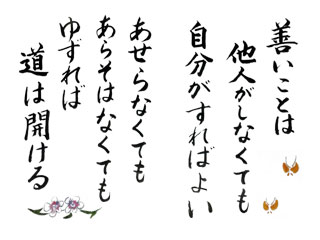 善いことは
他人がしなくても
自分がすればよい
あせらなくても
あらそはなくても
ゆずれば
道は開ける